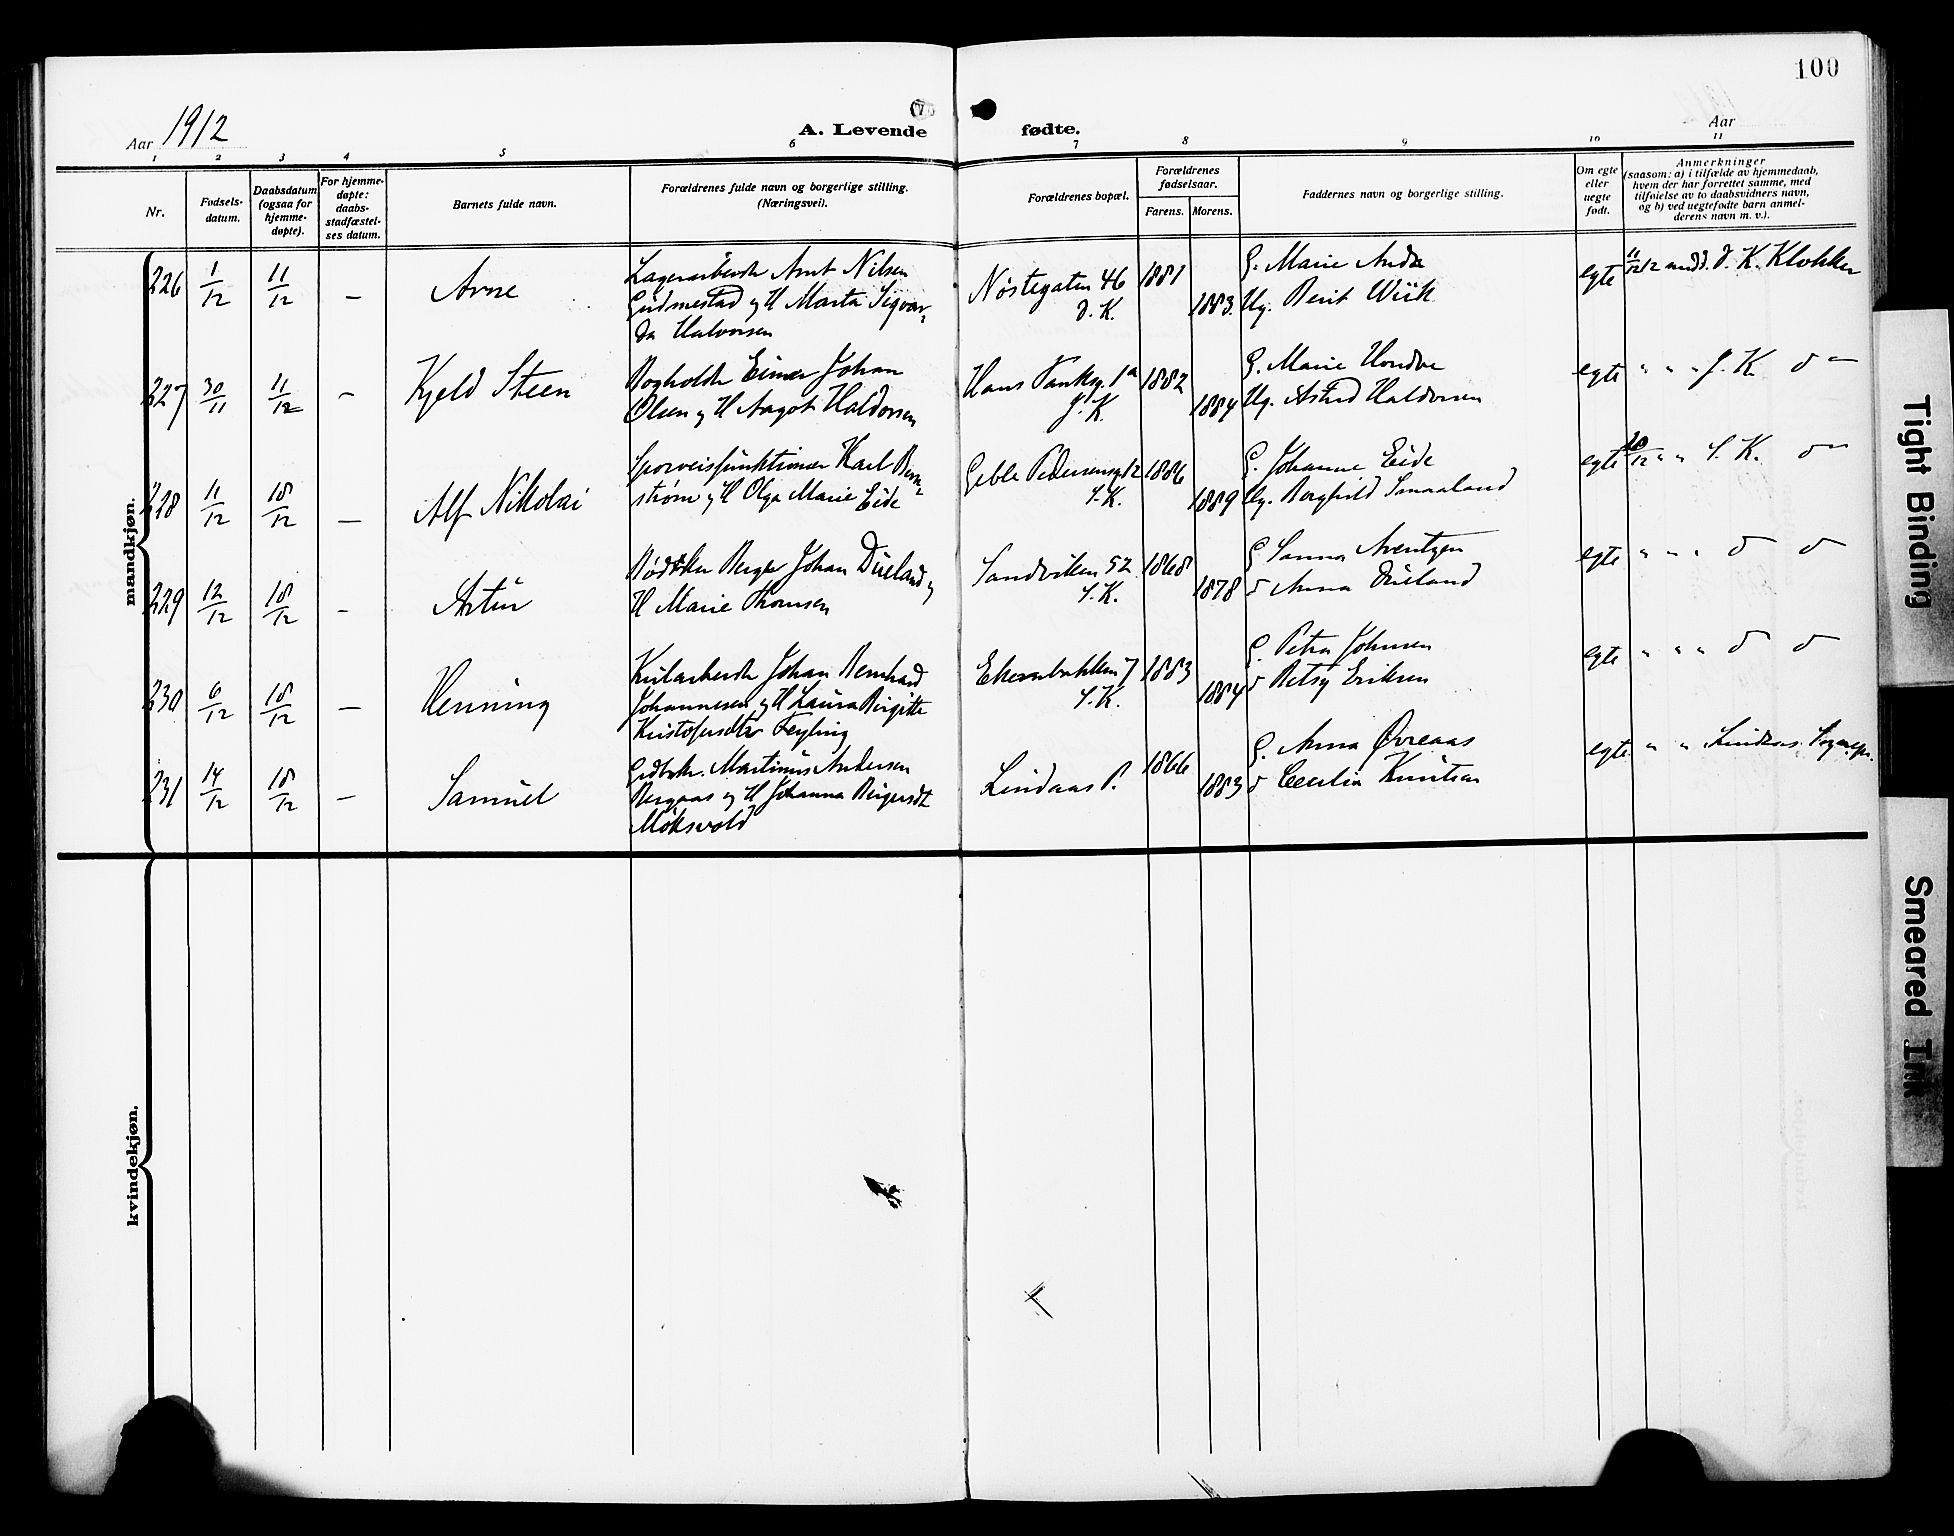 100
Aar 1912
A. Levende
fødte.
Aar
1 2 3 4 5 6 7 8 9 10 11
Nr.
Fødsels-
datum.
Daabsdatum
(ogsaa for
hjemme-
døpte).
For hjemme-
døpte:
daabs-
stadfæstel-
ses datum.
Barnets fulde navn.
Forældrenes fulde navn og borgerlige stilling.
(Næringsvei).
Forældrenes bopæl.
Forældrenes
fødselsaar.
Farens. Morens.
Faddernes navn og borgerlige stilling.
Om egte
eller
uegte
født.
Anmerkninger
(saasom: a) i tilfælde av hjemmedaab,
hvem der har forrettet samme, med
tilføielse av to daabsvidners navn,
og b) ved uegtefødte barn anmel-
derens navn m. v.).
mandkjøn.
226 1/12 11/12 — Arne
Lagerarbeider Arnt Nilsen
Gudmestad og H Marta Sigvar-
da Halvorsen
Nøstegaten 46
D. K.
1881
1883.
G. Marie Anda
Ug. Berit Wiik
egte
11/12 12 medd. D. K. Klokker
227 30/11 11/12 — Kjeld Steen
Bogholder Einar Johan
Olsen og H Aagot Haldorsen
Hans Tanksg. 1a
J. K.
1882
1884
G. Marie Hondve
Ug. Astrid Haldorsen
egte
" " " J. K. d —
228 11/12 18/12 — Alf Nikolai
Sporveisfunktionær Karl Berg-
strøm og H Olga Marie Eide
Geble Pedersensg 12
S. K.
1886
1889
G. Johanne Eide
Ug. Borghild Smaaland
egte
20/12 " " S. K. d —
229 12/12 18/12 — Artur
Bødker Berge Johan Dueland og
H Marie Thomsen
Sandviken 52
S. K.
1868
1878
G. Sanna Arentzen
d Anna Dueland
egte
" " " d d
230 6/12 18/12 — Henning
Kularbeider Johan Bernhard
Johannesen og H Laura Birgitte
Kristofersdtr Teyling
Ekrenbakken 7
S. K.
1883
1884
G. Petra Johnsen
d Betsy Eriksen
egte
" " " d d
231 14/12 18/12 — Samuel
Gdbr. Martinus Andersen
Bergaas og H Johanna Birgersdt
Moksvold
Lindaas P.
1866
1883
G. Anna Øvreaas
d Cecilia Knutsen
egte
" " Lindaas Sognepr.
kvindekjøn.
Tight Binding
Smeared Ink